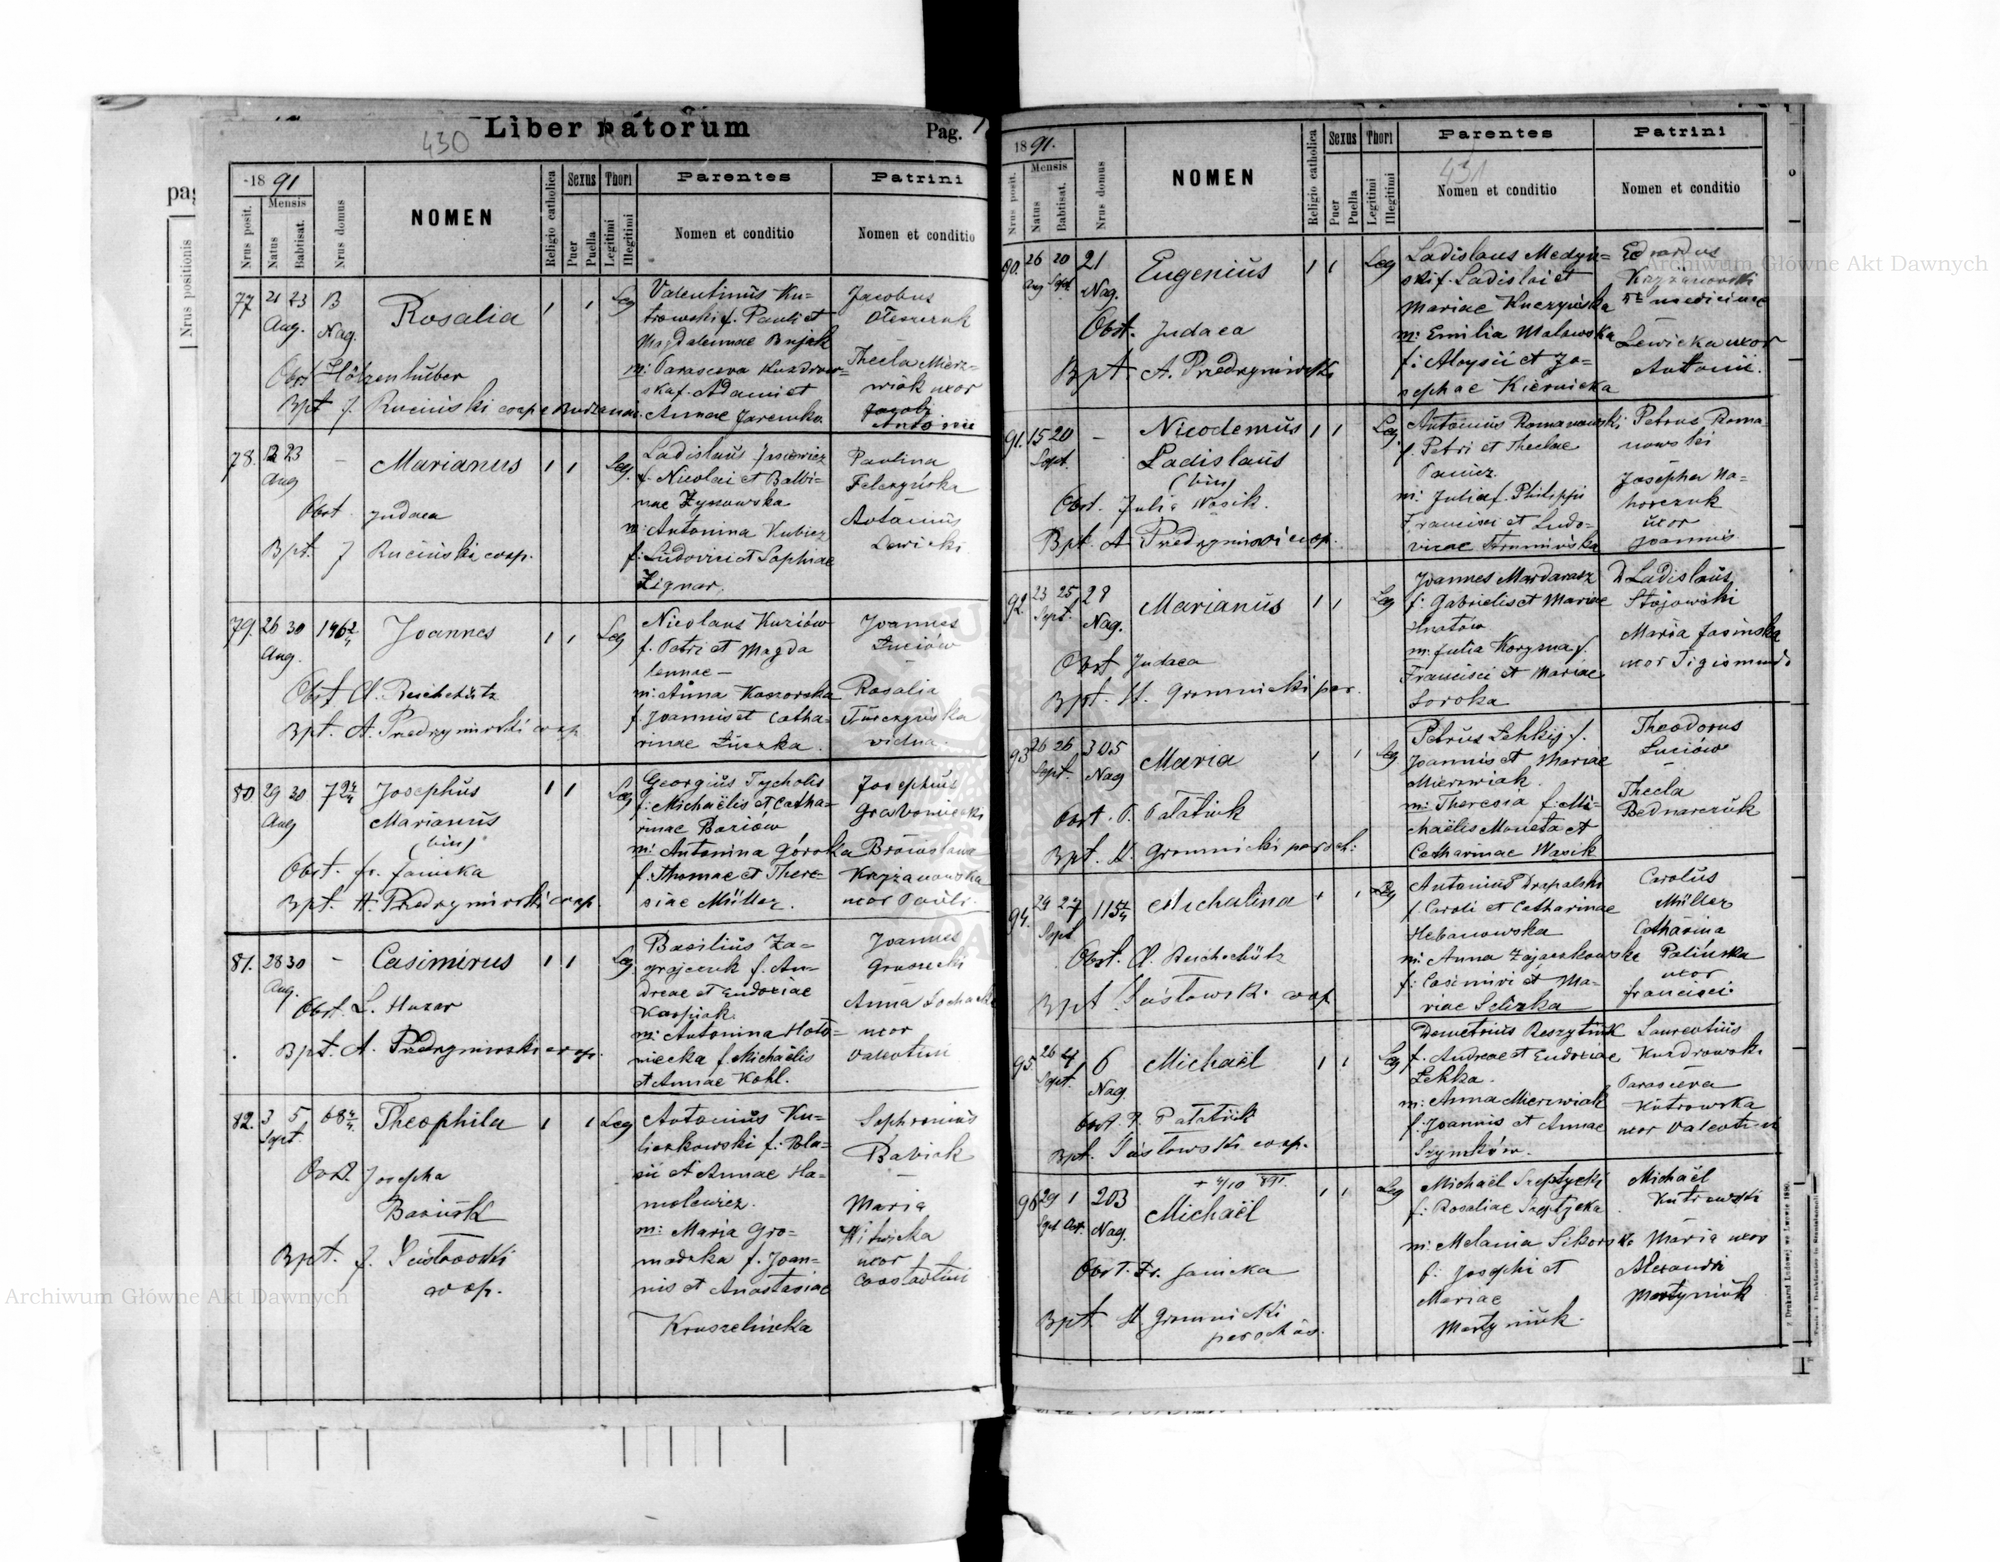 430
Liber natorum
Pag. 1
pag
Nrus positionis
-18 91
Mensis
Nrus posit.
Natus
Babtisat.
Nrus domus
NOMEN
Religio catholica
Sexus
Puer
Puella
Thori
Legitimi
Illegitimi
Parentes
Nomen et conditio
Patrini
Nomen et conditio
77
21 23
Aug.
13
Nag.
Rosalia
1
1
Leg
Valentinus Ku-
trowski f. Pauli et
Magdalennae Bnjak
m: Parasceva Kuzdrow-
ska f. Adami et
Annae Jaremko
Jacobus
Oleszczuk
Thecla Mierz-
wiak uxor
Jacobi
Obst Hölzenhuber
Bpt J. Ruciński coop
78.
12 23
Aug
-
Marianus
1
1
Leg.
Ladislaus Jasiewicz
f. Nicolai et Balbi-
nae Żynowska
m: Antonina Kubicz
f: Ludovici et Sophiae
Zignar.
Paulina
Felczyńska
Antonius
Lewicki
Obst. judaea
Bpt. J Ruciński coop.
79.
26 30
Aug.
Joannes
1
1
Leg
Nicolaus Kuziów
f. Petri et Magda
lennae -
m: Anna Kaszorska
f. Joannis et Catha-
rinae
Joannes
Łuciów
-
Rosalia
Turczyńska
vidua.
Obst A. Reicheltz
Bpt. A. Predzymirski coop
80
29 30
Aug
Josephus
Marianus
(bin)
1
1
Leg
Georgius Tycholis
f: Michaëlis et Catha-
rinae Baziów
m: Antonina Górska
f. Thomae et There-
siae Müller.
Josephus
Grabowiecki
Bronislawa
Kryżanowska
uxor Pauli.
Obst. fr. Janicka
Bpt. A. Predzymirski coop.
81.
28 30
Aug.
-
Casimirus
1
1
Leg.
Basilius Za-
grajczuk f. An-
dreae et Eudoxiae
Karpiak.
m: Antonina Hoło-
wiecka f. Michaëlis
et Annae Kohl.
Joannes
Gruszecki
Anna Lochacka
uxor
Valentini
Obst. L. Huzar
Bpt. A. Predzymirski coop.
82.
3 5
Sept.
Theophila
1
1
Leg
Antonius Ku-
liczkowski f. Bla-
sii et Annae Ha-
molewicz.
m: Maria Gro-
madzka f. Joan-
nis et Anastasiae
Kruszelnicka
Sophronius
Babiak
-
Maria
Witwicka
uxor
Constantini
Obst. Josepha
Baziuk
Bpt. J.
coop.
18 91.
Mensis
Nrus posit.
Natus
Babtisat.
Nrus domus
NOMEN
Religio catholica
Sexus
Puer
Puella
Thori
Legitimi
Illegitimi
Parentes
431
Nomen et conditio
Patrini
Nomen et conditio
90.
26 20
Aug Sept
21
Nag.
Eugenius
1
1
Leg
Ladislaus Medyń-
ski f. Ladislai et
Mariae Kuczyńska
m: Emilia Malewska
f: Aloysii et Jo-
sephae Kiernicka
Edvardus
Krzyżanowski
medicinae
Lewicka uxor
Antonii.
Obst. Judaea
Bpt. A. Predzymirski
91.
15 20
Sept.
-
Nicodemus
Ladislaus
(bin)
1
1
Leg.
Antonius Romanowski
f. Petri et Theclae
Panicz
m: Julia f. Philippi
Francisci et Ludo-
vicae
Petrus Roma-
nowski
Josepha Na-
horczuk
uxor
Joannis
Obst. Julia Wasik.
Bpt. A Predzymirski coop.
92.
23 25
Sept.
28
Nag.
Marianus
1
1
Leg
Joannes Mardarasz
f: Gabrielis et Mariae
Hnatów
m: Julia Koryzna f.
Francisci et Mariae
Soroka
Ladislaus
Stojowski
Maria Jasinska
uxor Sigismundi
Obst Judaea
Bpt. H. Gromnicki par.
93
26 26
Sept.
305
Nag
Maria
1
1
Leg
Petrus Lehkij f.
Joannis et Mariae
Mierzwiak.
m: Theresia f: Mi-
chaëlis Moneta et
Catharinae Wasik
Theodorus
Łuciów
-
Thecla
Bednarczuk
Obst. P. Palatiuk
Bpt. H. Gromnicki paroch:
94.
24 27
Sept
Michalina
1
1
Leg
Antonius Drapalski
f. Caroli et Catharinae
Hebanowska
m: Anna Zajaczkowska
f: Casimiri et Ma-
riae
Carolus
Müller
Catharina
Palińska
uxor
Francisci.
Obst. A. Reicheltz
Bpt. coop
95.
26 27
Sept.
6
Nag.
Michaël
1
1
Leg
Demetrius Reszytiuk
f. Andreae et Eudoxiae
Lehka.
m: Anna Mierzwiak
f: Joannis et Annae
Szymków.
Laurentius
Kuzdrowski
Parasceva
Kutrowska
uxor Valentini
Obst P. Palatiuk
Bpt. coop.
96
29 1
Sept Oct.
203
Nag.
Michaël
1
1
Leg
Michaël Szeptycki
f: Rosaliae Szeptycka
m: Melania Sikorska
f: Josephi et
Mariae
Martyniuk.
Michaël
Kutrowski
Maria uxor
Alexandri
Martyniuk
Obst. Fr. Janicka
Bpt H Gromnicki
parochus.
Archiwum Główne Akt Dawnych
Archiwum Główne Akt Dawnych